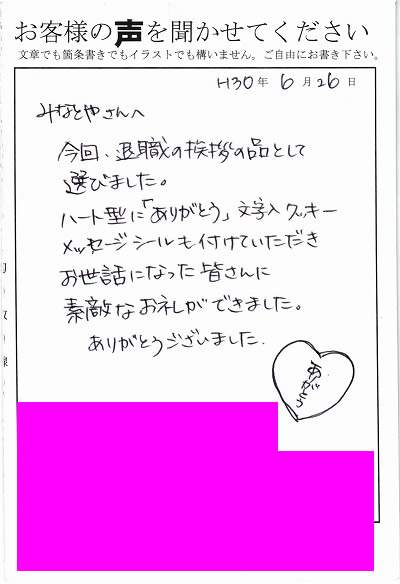 お客様の声を聞かせてください
文章でも箇条書きでもイラストでも構いません。ご自由にお書き下さい。
H30年 6月26日
みなとやさんへ
今回、退職の挨拶の品として
選びました。
ハート型に「ありがとう」文字入クッキー
メッセージシールも付けていただき
お世話になった皆さんに
素敵なお礼ができました。
ありがとうございました.
ありがとう